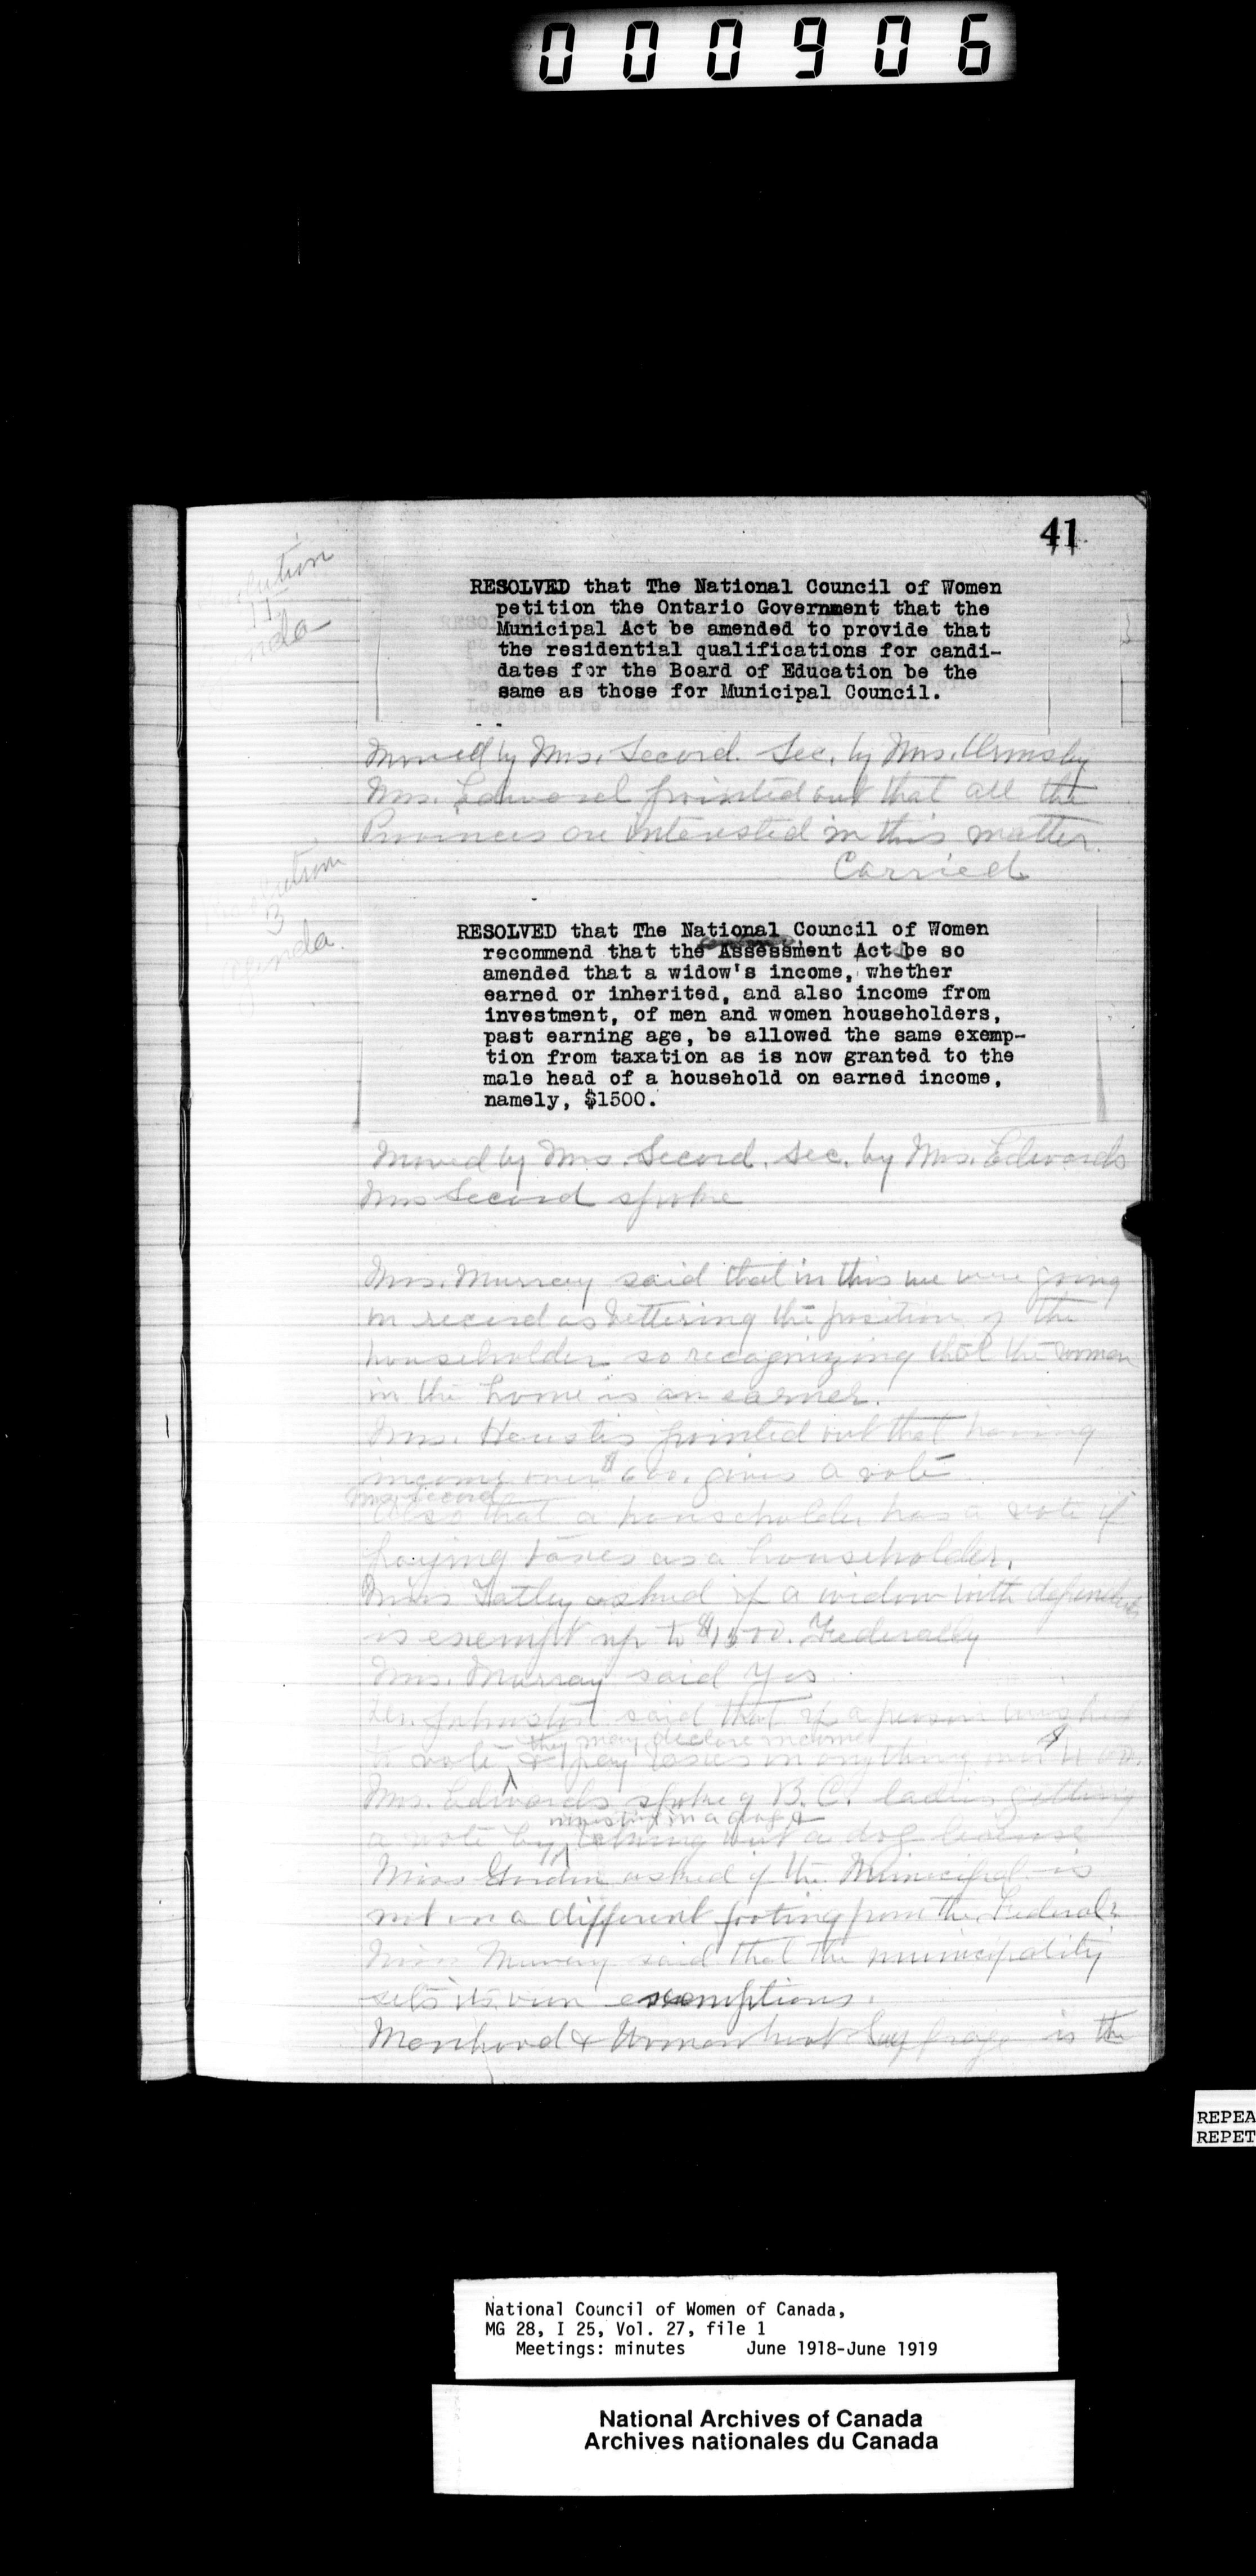 000906
41
Resolution
11
Agenda
RESOLVED that The National Council of Women
petition the Ontario Government that the
Municipal Act be amended to provide that
the residential qualifications for candi-
dates for the Board of Education be the
same as those for Municipal Council.
Moved by Mrs. Secord. Sec. by Mrs. Ormsby
Mrs. pointed out that all the
Provinces are interested in this matter.
Carried
Resolution
B
Agenda.
RESOLVED that The National Council of Women
recommend that the Assessment Act be so
amended that a widow's income, whether
earned or inherited, and also income from
investment, of men and women householders,
past earning age, be allowed the same exemp-
tion from taxation as is now granted to the
male head of a household on earned income,
namely, $1500.
Moved by Mrs. Secord, Sec. by Mrs. Edwards
Mrs Secord spoke
Mrs. Murray said that in this we were going
on record as bettering the position of the
householder so recognizing that the woman
in the home is an earner.
Mrs. Huestis pointed out that having
income over $600. gives a vote
Mrs. Secord
also that a householder has a vote if
paying taxes as a householder.
Miss Tatley asked if a widow with dependents
is exempt up to $1500. Federally
Mrs. Murray said Yes
Dr. Johnston said that if a person wished
they may declare income
to vote, & pay taxes on anything over $
Mrs. Edwards spoke of B.C. ladies getting
investing in a dog &
a vote by taking out a dog license
Miss Gordon asked if the Municipal is
not on a different footing from the Federal?
Miss Murray said that the municipality
sets its own exemptions.
Manhood & Womanhood Suffrage is the
REPEA
REPET
National Council of Women of Canada,
MG 28, I 25, Vol. 27, file 1
Meetings: minutes June 1918-June 1919
National Archives of Canada
Archives nationales du Canada